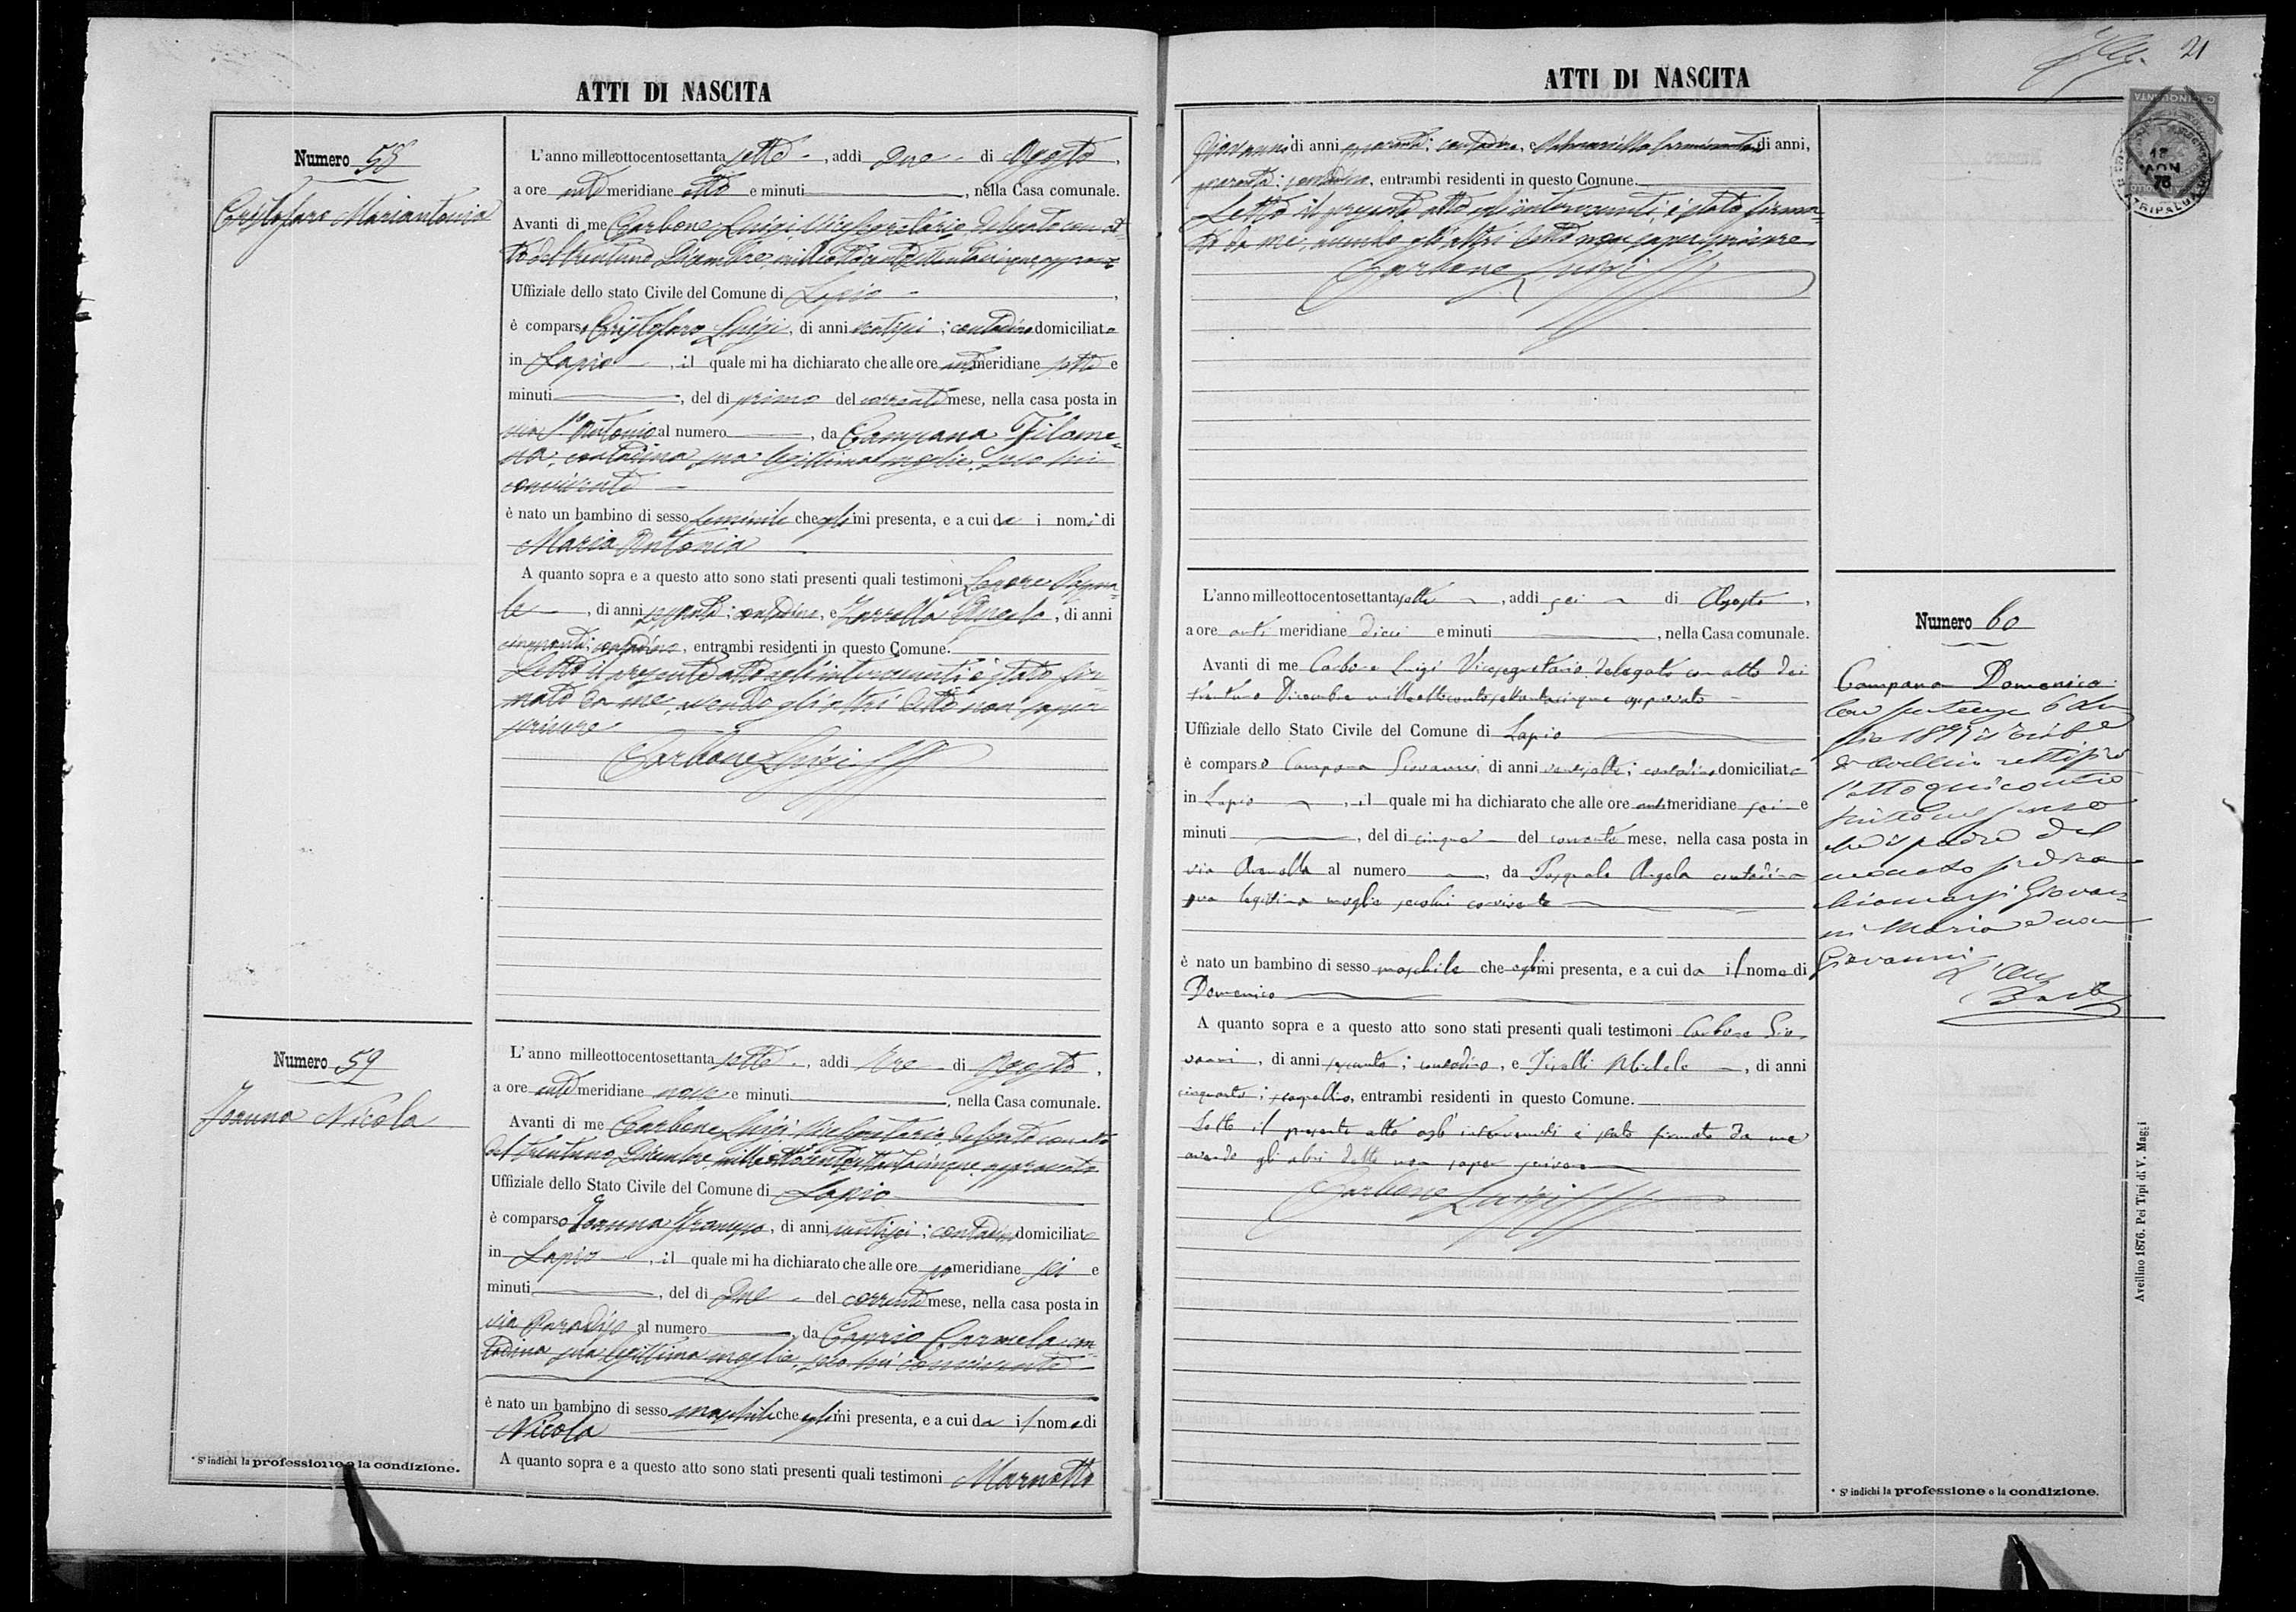 ATTI DI NASCITA
Numero 58
Cristofaro Mariantonia
L'anno milleottocentosettanta sette, addi due di Agosto,
a ore anti meridiane otto e minuti, nella Casa comunale.
Avanti di me Carbone Luigi Vicesegretario delegato con at-
to del trentuno Dicembre milleottocentosettantacinque approvato
Uffiziale dello stato Civile del Comune di Lapio,
è comparso Cristofaro Luigi, di anni ventisei; contadino domiciliato
in Lapio, il quale mi ha dichiarato che alle ore antimeridiane sette e
minuti, del di primo del corrente mese, nella casa posta in
via S. Antonio al numero, da Campana Filome-
na, contadina sua legittima moglie, seco lui
convivente
è nato un bambino di sesso feminile che egli mi presenta, e a cui da i nomi di
Maria Antonia
A quanto sopra e a questo atto sono stati presenti quali testimoni
di anni; contadino, e Zarrella Angelo, di anni
cinquanta; contadino, entrambi residenti in questo Comune.
Letto il presente atto agli intervenuti è stato fir-
mato da me, avendo gli altri detto non saper
scrivere
Carbone Luigi
Numero 59
Ioanna Nicola
L'anno milleottocentosettanta sette, addi tre di Agosto,
a ore anti meridiane nove e minuti, nella Casa comunale.
Avanti di me Carbone Luigi Vicesegretario delegato con atto
del trentuno Dicembre milleottocentosettantacinque approvato
Uffiziale dello Stato Civile del Comune di Lapio
è comparso Ioanna, di anni ventisei; contadino domiciliato
in Lapio, il quale mi ha dichiarato che alle ore po meridiane sei e
minuti, del di due del corrente mese, nella casa posta in
via Paradiso al numero, da Caprio Carmela con-
tadina sua legittima moglie, seco lui convivente
è nato un bambino di sesso maschile che egli mi presenta, e a cui da il nome di
Nicola
A quanto sopra e a questo atto sono stati presenti quali testimoni
* S'indichi la professione o la condizione.
21
ATTI DI NASCITA
Giovanni di anni; contadino, e di anni,
; contadino, entrambi residenti in questo Comune.
Letto il presente atto agli intervenuti è stato firma-
to da me, avendo gli altri detto non saper scrivere
Carbone Luigi
L'anno milleottocentosettanta sette, addi sei di Agosto,
a ore anti meridiane dieci e minuti, nella Casa comunale.
Avanti di me Carbone Luigi Vicesegretario delegato con atto dei
trentuno Dicembre milleottocentosettantacinque approvato
Uffiziale dello Stato Civile del Comune di Lapio
è comparso Campana Giovanni, di anni ventisette; contadino domiciliato
in Lapio, il quale mi ha dichiarato che alle ore antimeridiane sei e
minuti, del di cinque del corrente mese, nella casa posta in
via al numero, da Pasquale Angela contadina
sua legittima moglie seco lui convivente
è nato un bambino di sesso maschile che egli mi presenta, e a cui da il nome di
Domenico
A quanto sopra e a questo atto sono stati presenti quali testimoni Carbone Gio-
vanni, di anni; contadino, e Michele, di anni
cinquanta; scarpellino, entrambi residenti in questo Comune.
Letto il presente atto agli intervenuti è stato firmato da me
avendo gli altri detto non saper scrivere
Carbone Luigi
Numero 60
Campana Domenico
Con sentenza 6 Lu-
glio 189 il Trib.e
di Avellino rettificò
l'atto qui contro
scritto nel senso
che il padre del
neonato predetto
chiamasi Giovan-
ni Maria e non
Giovanni
CINQUANTA
ATRIPALDA
Avellino 1876. Pei Tipi di V. Maggi
* S'indichi la professione o la condizione.